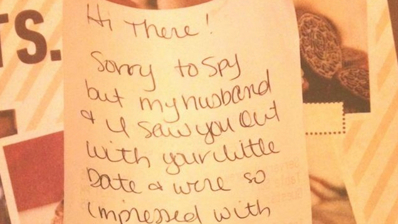 TS.
Hi There!
Sorry to spy
but my husband
& I saw you out
with your little
Date & were so
impressed with